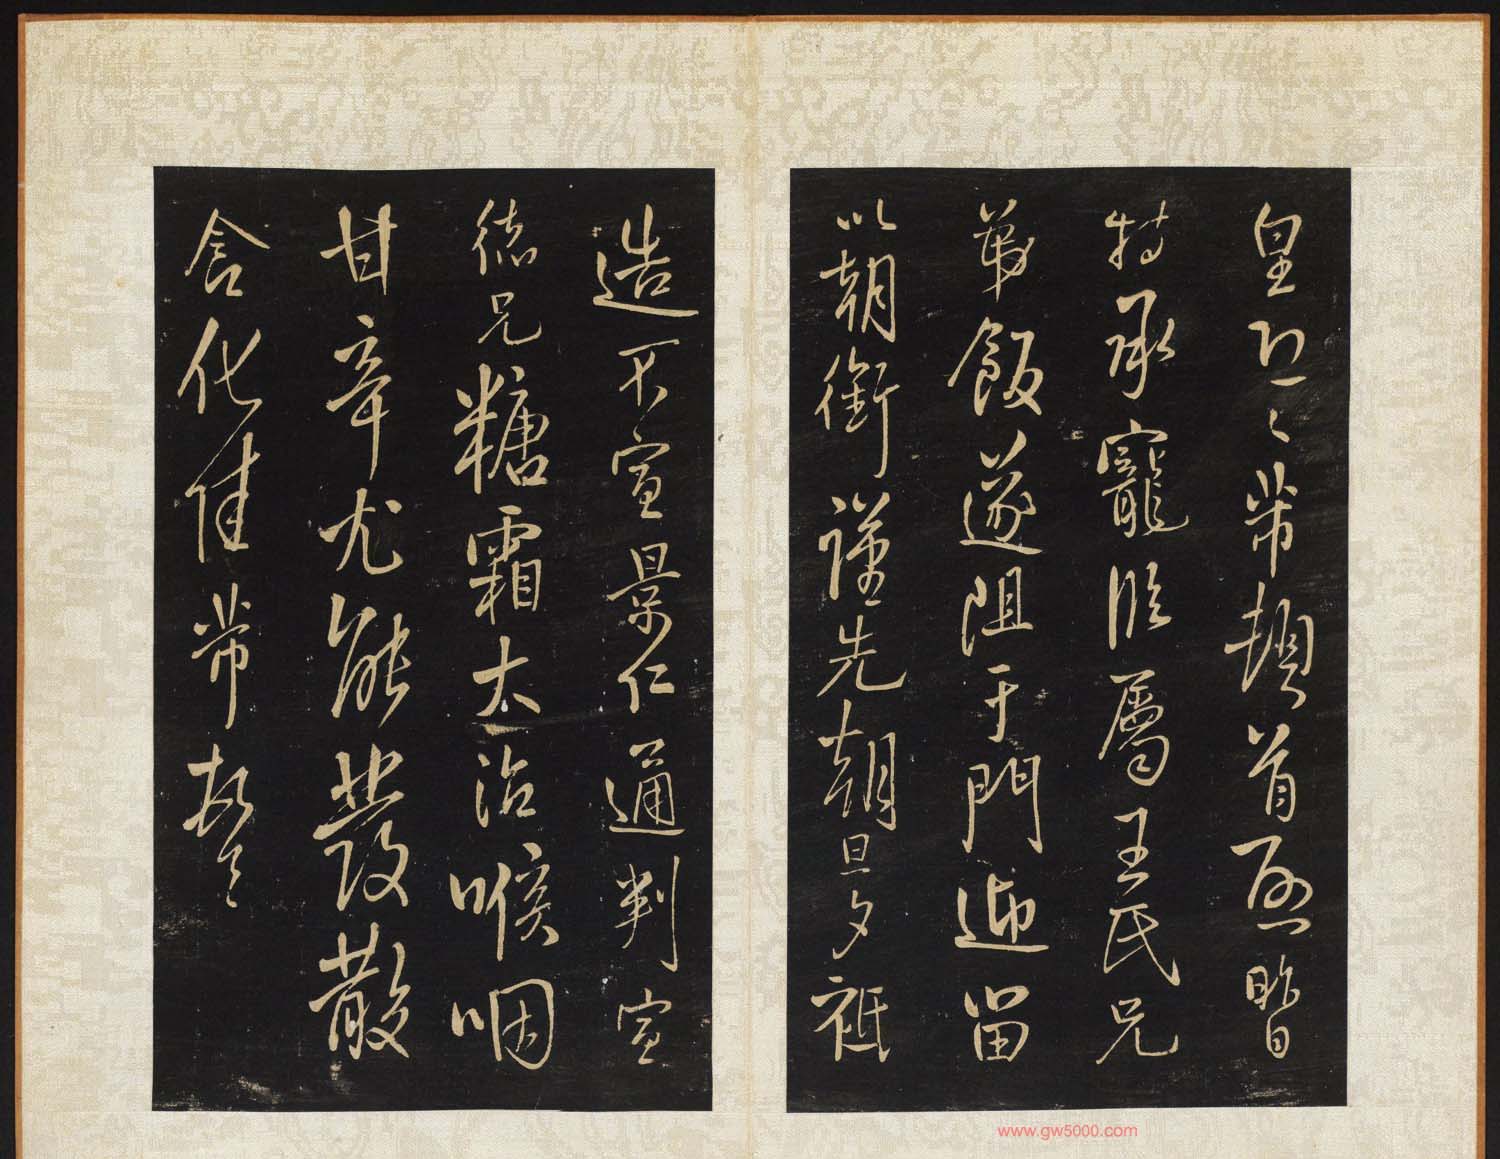 皇恐皇恐芾頓首啓昨日
特承寵臨屬王氏兄
弟飯遂阻于門迎留
以朝銜謹先朝旦夕祗
造不宣景仁通判宣
德兄糖霜太治喉咽
甘辛尤能發散
含化佳芾頓首
www.gw5000.com